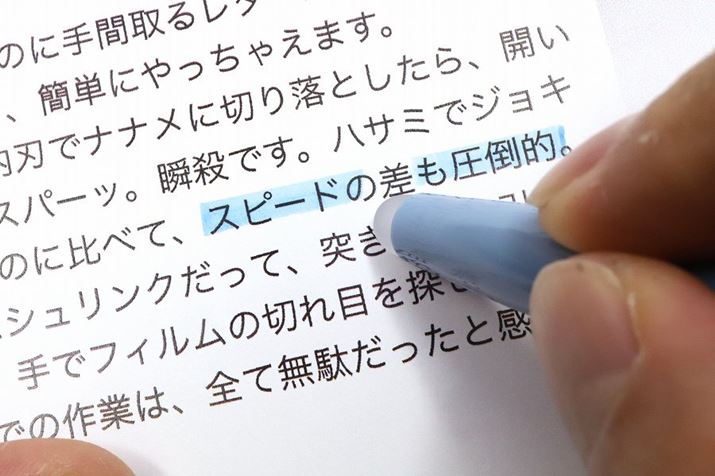 のに手間取るレタ
、簡単にやっちゃえます。
内刃でナナメに切り落としたら、開い
スパーッ。瞬殺です。ハサミでジョキ
のに比べて、スピードの差も圧倒的。
シュリンクだって、突き
手でフィルムの切れ目を探
での作業は、全て無駄だったと感